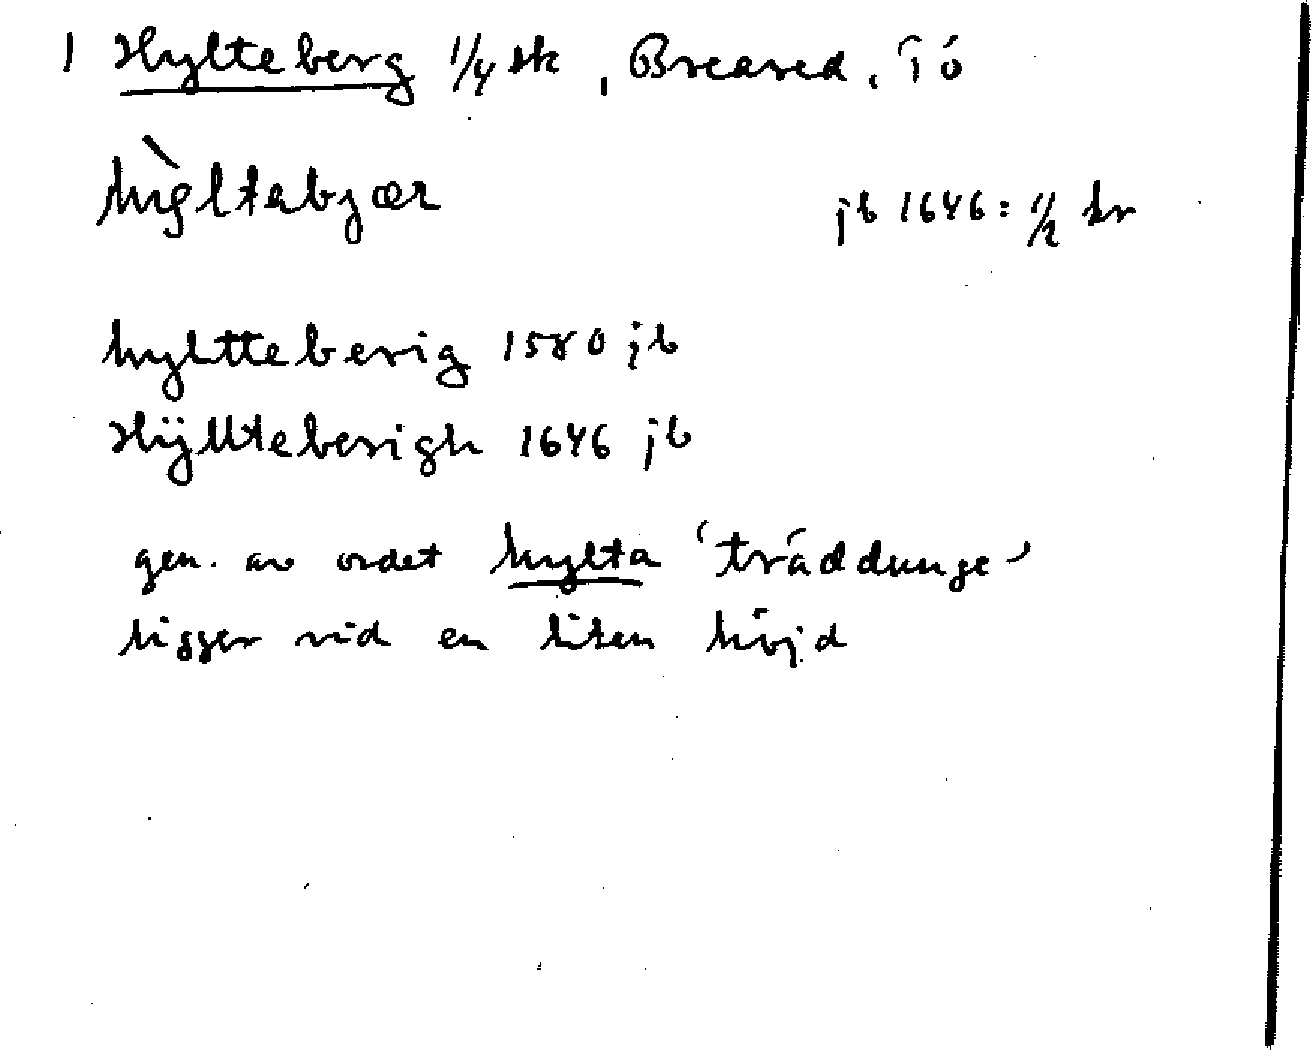 1 Hylteberg 1/4 sk, Breared, Tö
hỳltabjær
jb 1646: 1/2 kr
hyltteberig 1580 jb
Hÿllteberigh 1646 jb
gen. av ordet hylta 'träddunge'
ligger vid en liten höjd